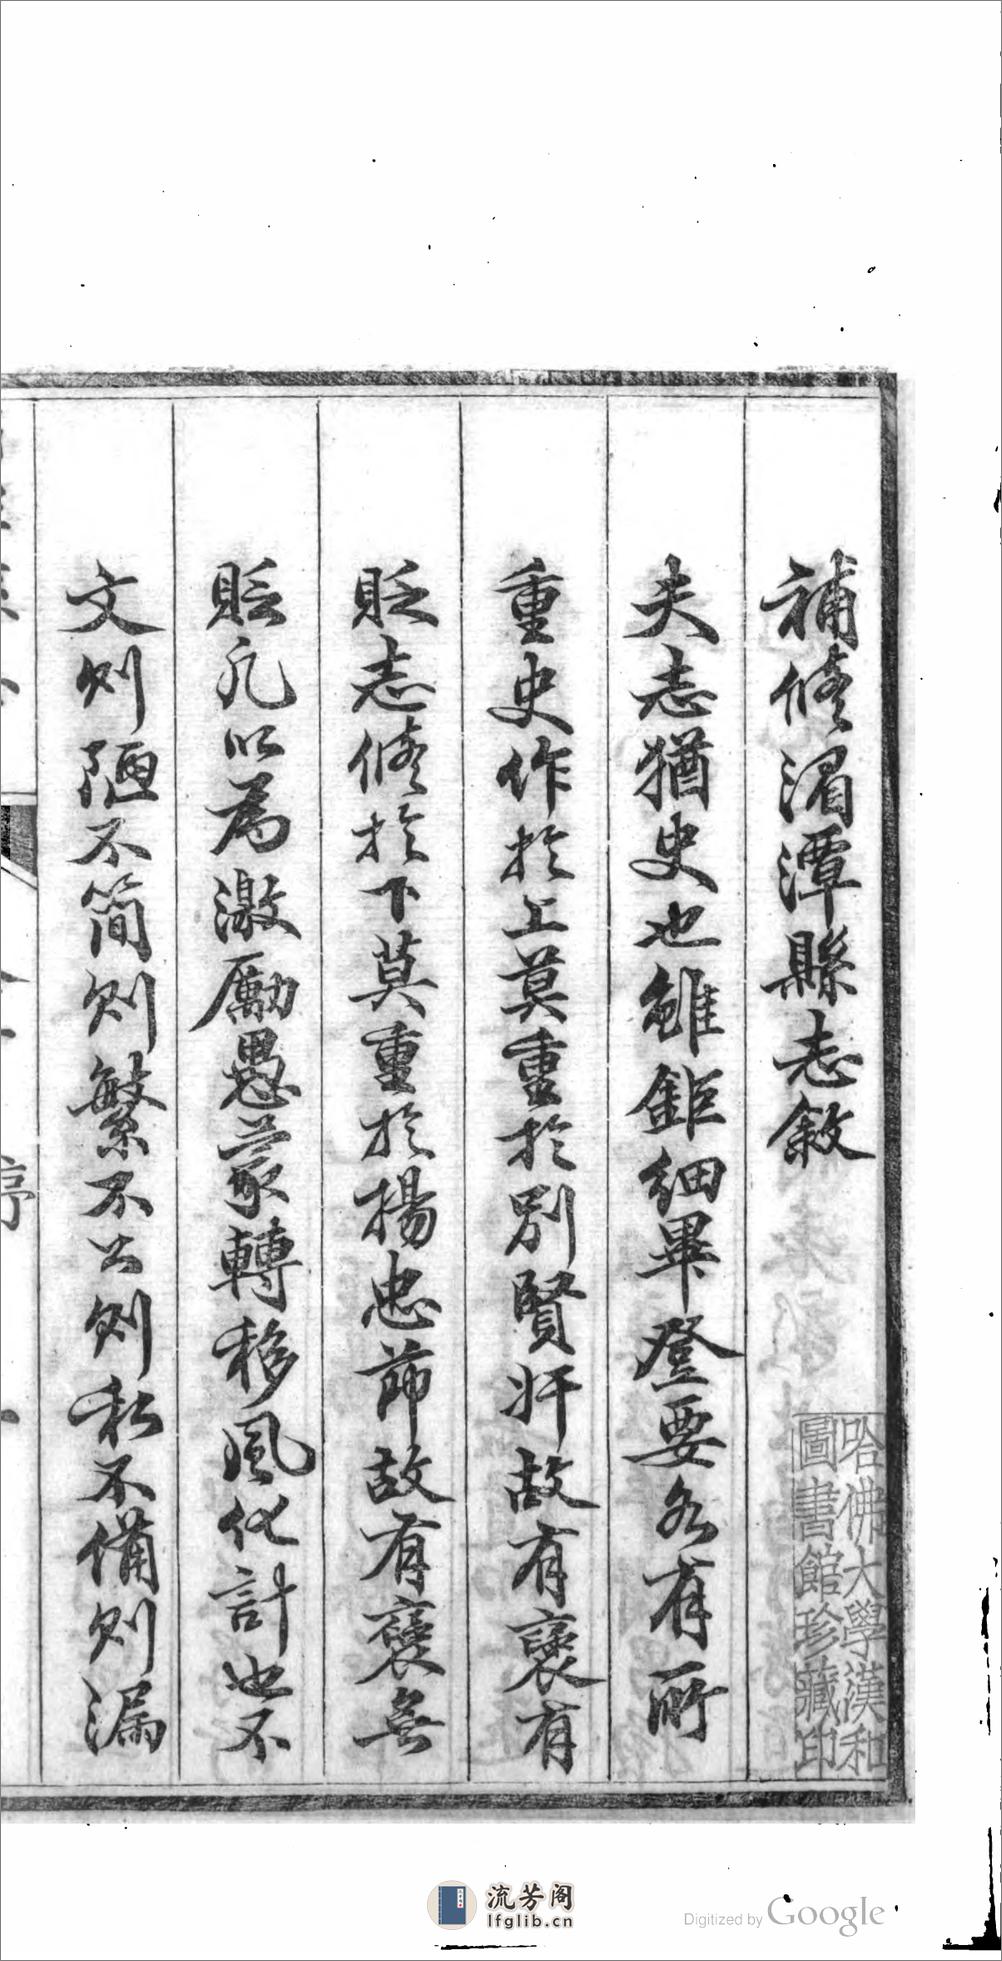 補修湄潭縣志敘
夫志猶史也雖鉅細畢登要各有所
重史作於上莫重於別賢奸故有褒有
貶志修於下莫重於揚忠節故有褒無
貶凡以為激勵愚蒙轉移風化計也不
文則陋不簡則繁不公則私不備則漏
序
哈佛大學漢和
圖書館珍藏印
流芳阁
lfglib.cn
Digitized by Google